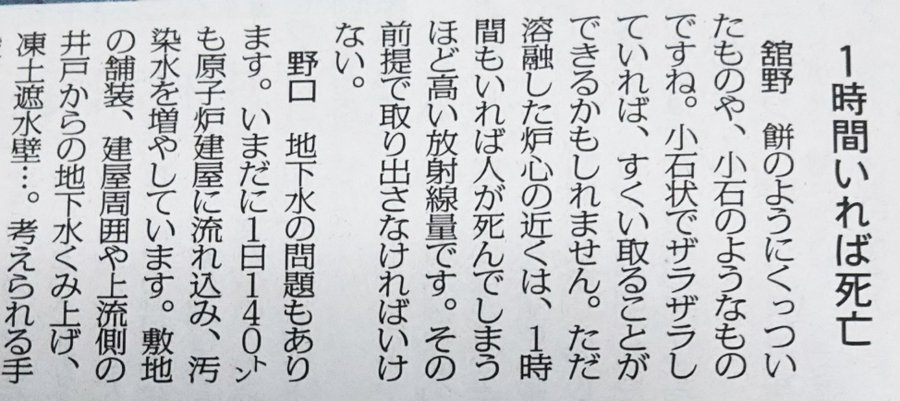 1時間いれば死亡
舘野　餅のようにくっつい
たものや、小石のようなもの
ですね。小石状でザラザラし
ていれば、すくい取ることが
できるかもしれません。ただ
溶融した炉心の近くは、1時
間もいれば人が死んでしまう
ほど高い放射線量です。その
前提で取り出さなければいけ
ない。
野口　地下水の問題もあり
ます。いまだに1日140㌧
も原子炉建屋に流れ込み、汚
染水を増やしています。敷地
の舗装、建屋周囲や上流側の
井戸からの地下水くみ上げ、
凍土遮水壁…。考えられる手